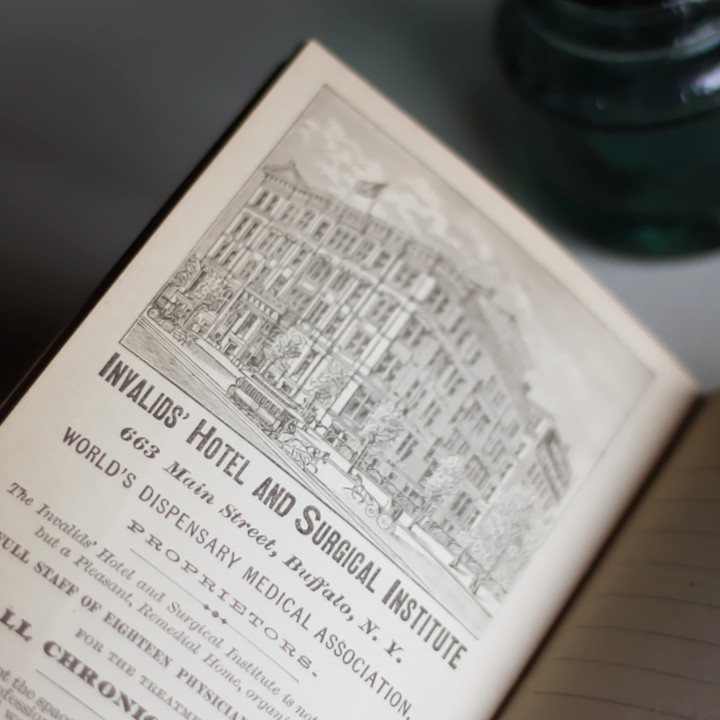 INVALIDS' HOTEL AND SURGICAL INSTITUTE
663 Main Street, Buffalo, N. Y.
WORLD'S DISPENSARY MEDICAL ASSOCIATION,
PROPRIETORS.
The Invalids' Hotel and Surgical Institute is not
but a Pleasant, Remedial Home, organ
FULL STAFF OF EIGHTEEN PHYSICIAN
FOR THE TREATME
LL CHRONIC
ot the spac